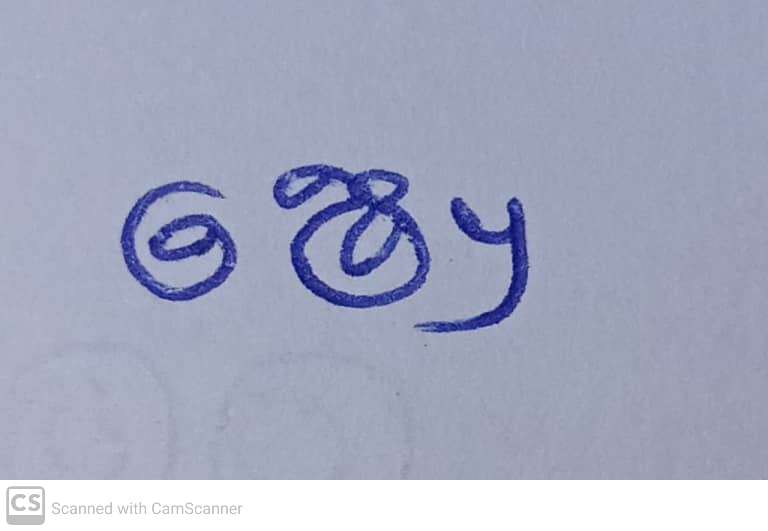 ജ്യെ
CS Scanned with CamScanner